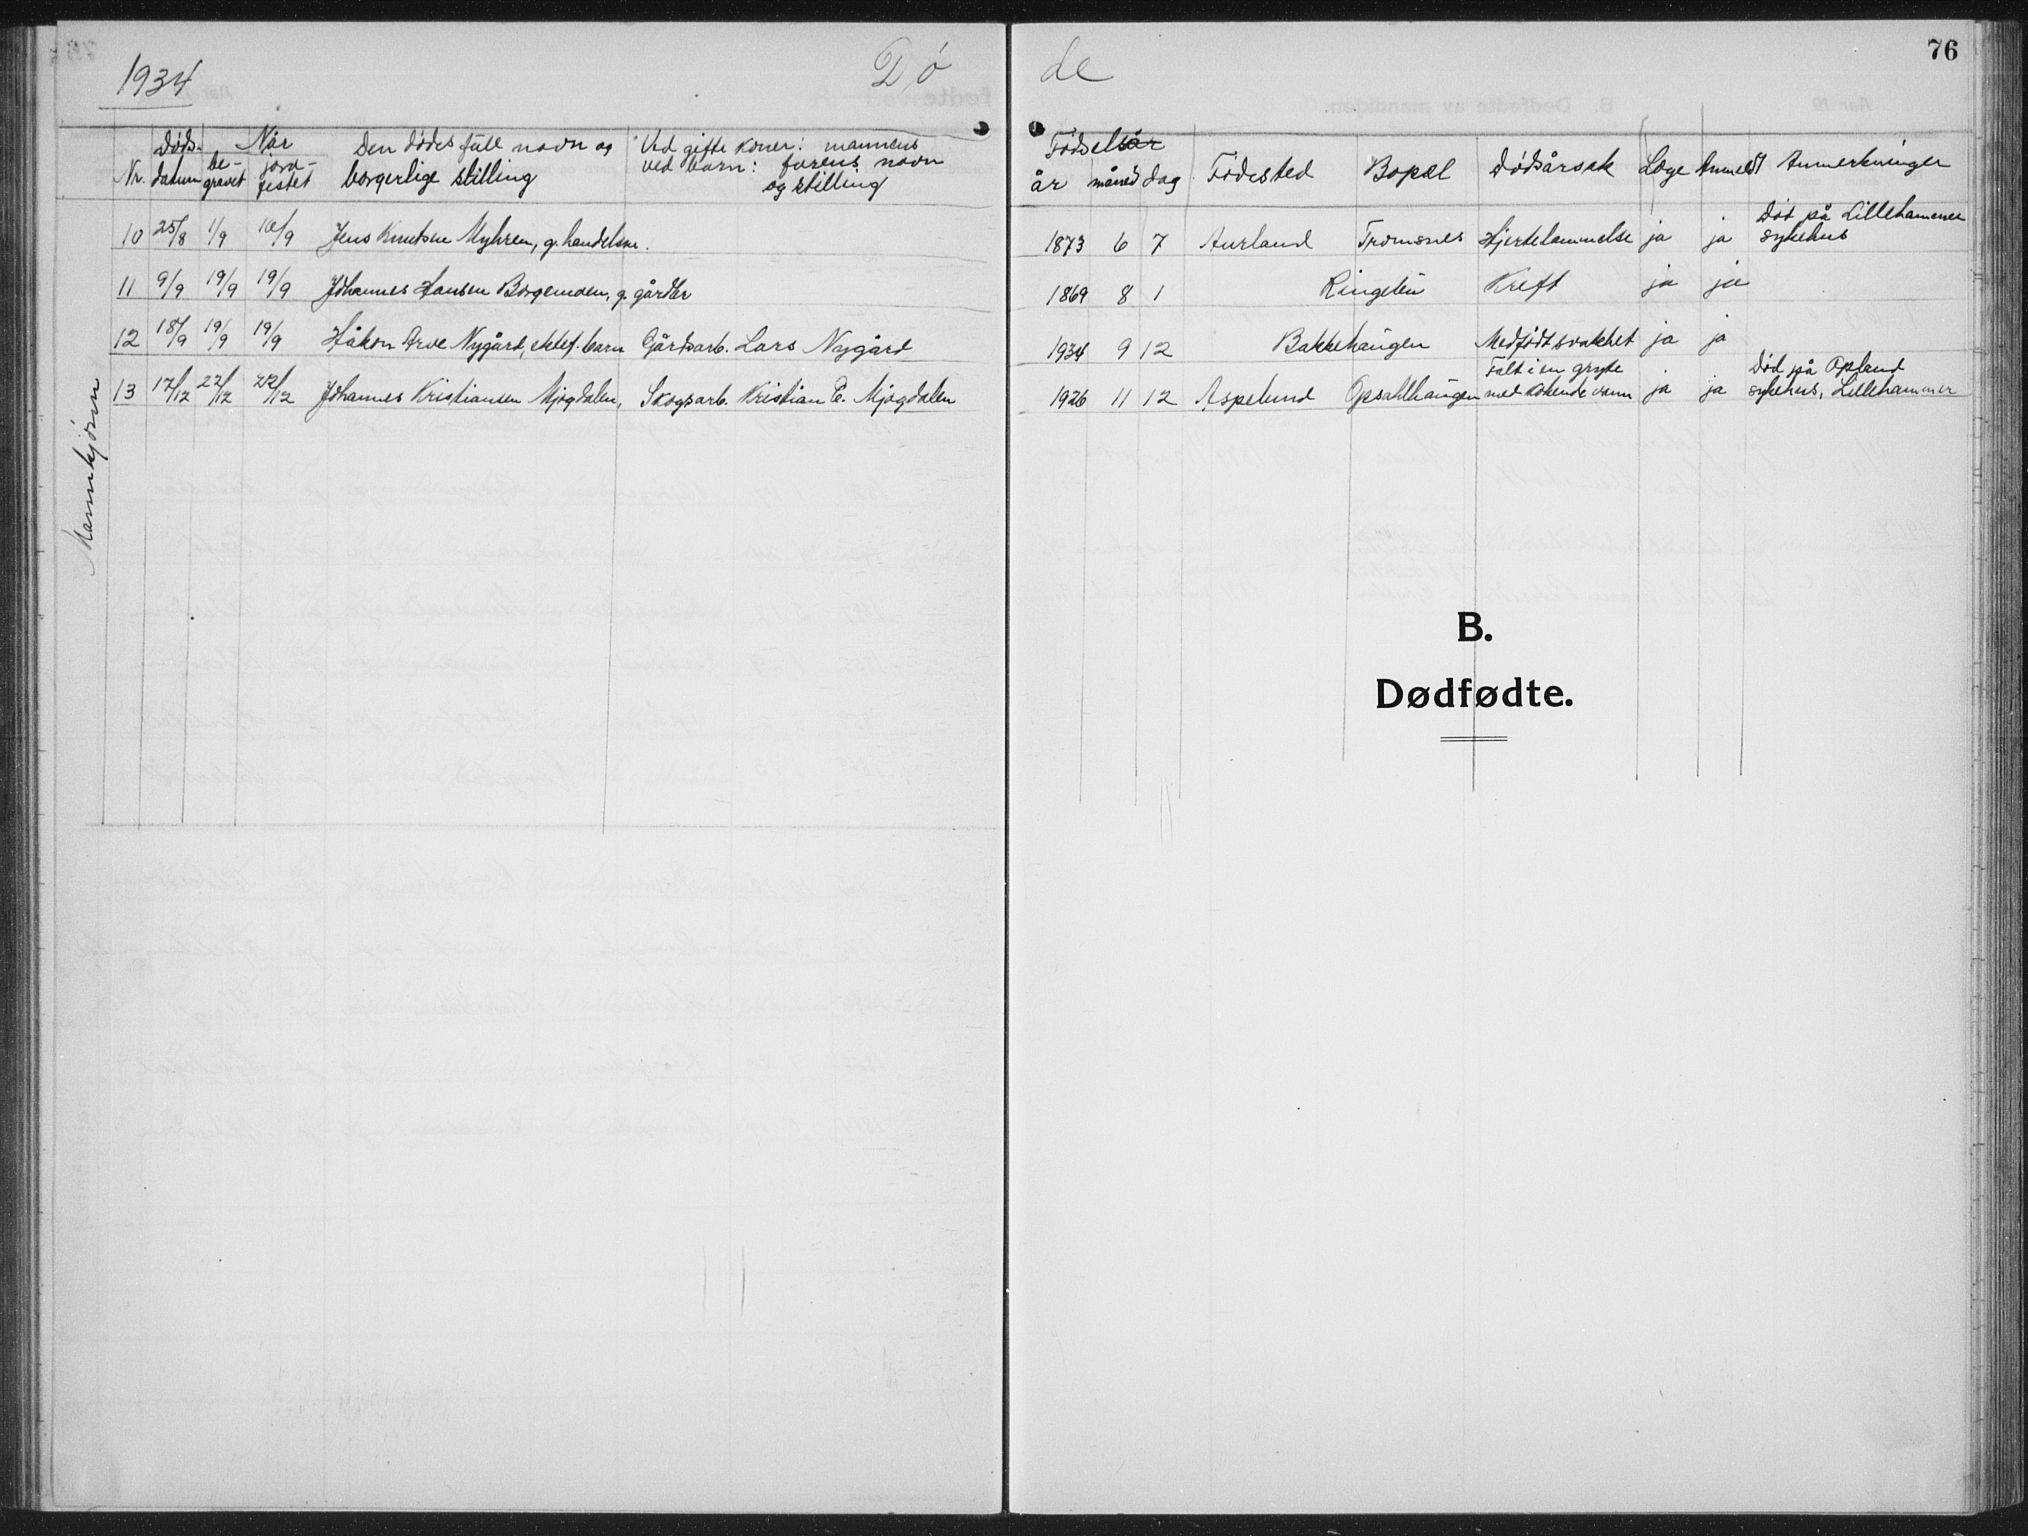 1934 Dø de 76
Nr. Døds- datum Når be- gravet jord- festet Den dødes fulle navn og borgerlige stilling Ved gifte koner: mannens ved barn: farens navn og stilling Fødselsår år måned dag Fødested Bopæl Dødsårsak Læge Anmeldt Anmerkninger
10 25/8 1/9 10/9 Jens Knutsen Myhren, g. handelsm. 1873 6 7 Aurland Tromsnes Hjertelammelse ja ja Død på Lillehammer sykehus
11 9/9 19/9 19/9 Johannes Hansen Borgemoen, g. gårdbr 1869 8 1 Ringebu Kreft ja ja
12 18/9 19/9 19/9 Håkon Arve Nygård, ektef. barn Gårdsarb. Lars Nygård 1934 9 12 Bakkehaugen Medfødt svakhet ja ja
13 17/12 22/12 22/12 Johannes Kristiansen Mjogdalen, Skogsarb. Kristian E. Mjogdalen 1926 11 12 Aspelund Opsahlhaugen Falt i en gryte med kokende vann ja ja Død på Opland sykehus, Lillehammer
Mannskjønn
B.
Dødfødte.